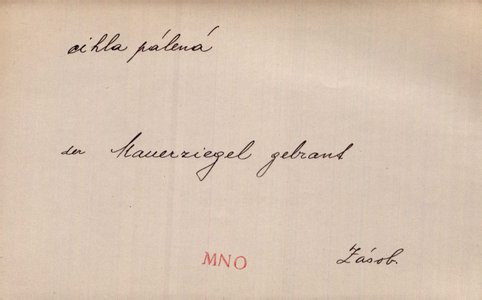 cihla pálená
der Mauerziegel gebrant
MNO Zásob.